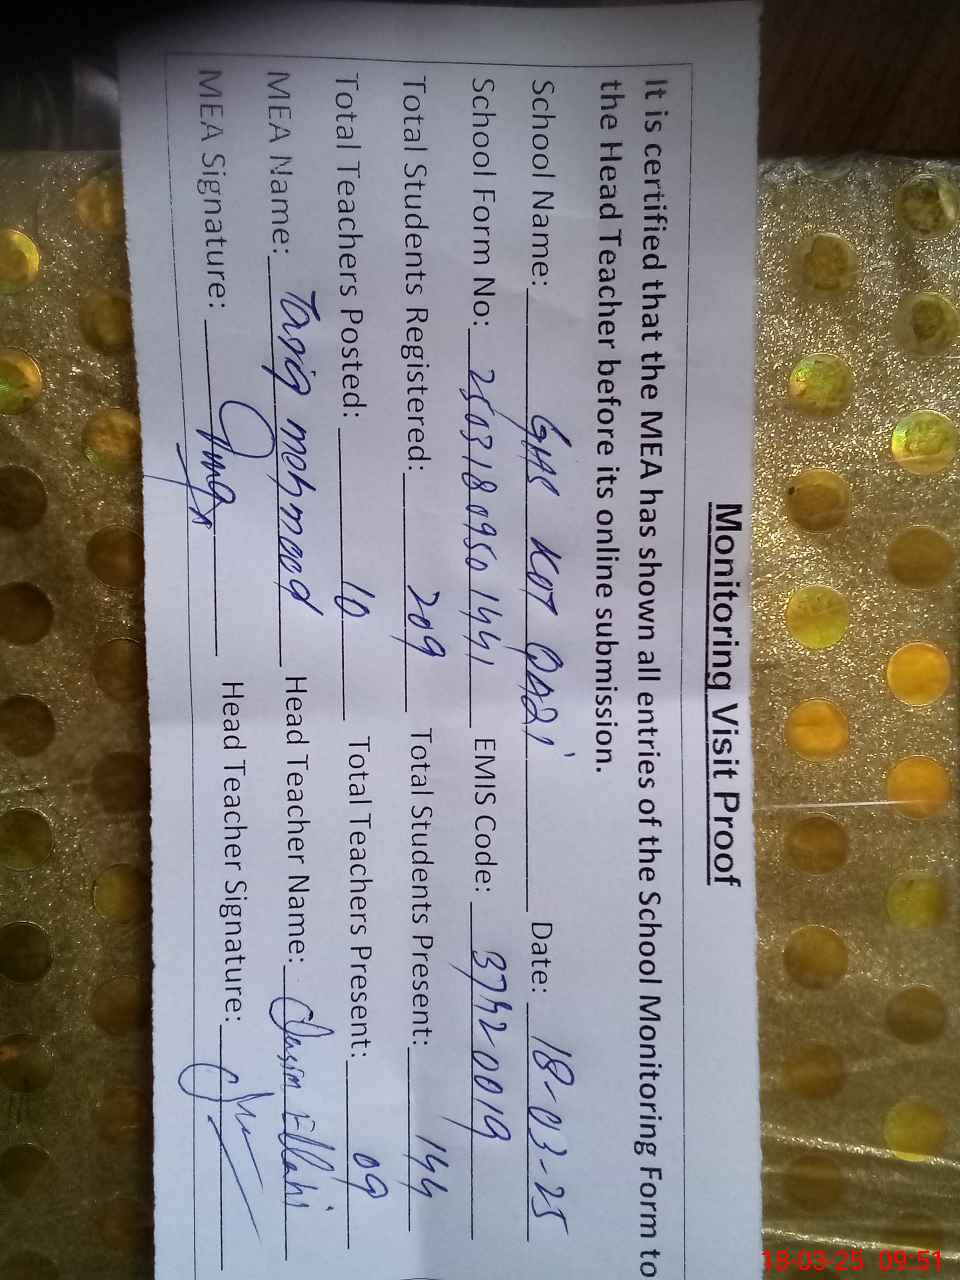 Monitoring Visit Proof
It is certified that the MEA has shown all entries of the School Monitoring Form to
the Head Teacher before its online submission.
School Name: GHS KOT QAZI Date: 18-03-25
School Form No: 2503180950 1441 EMIS Code: 37420019
Total Students Registered: 209 Total Students Present: 144
Total Teachers Posted: 10 Total Teachers Present: 09
MEA Name: Tariq mehmood Head Teacher Name: Ellahi
MEA Signature: Head Teacher Signature:
18-03-25 09:51